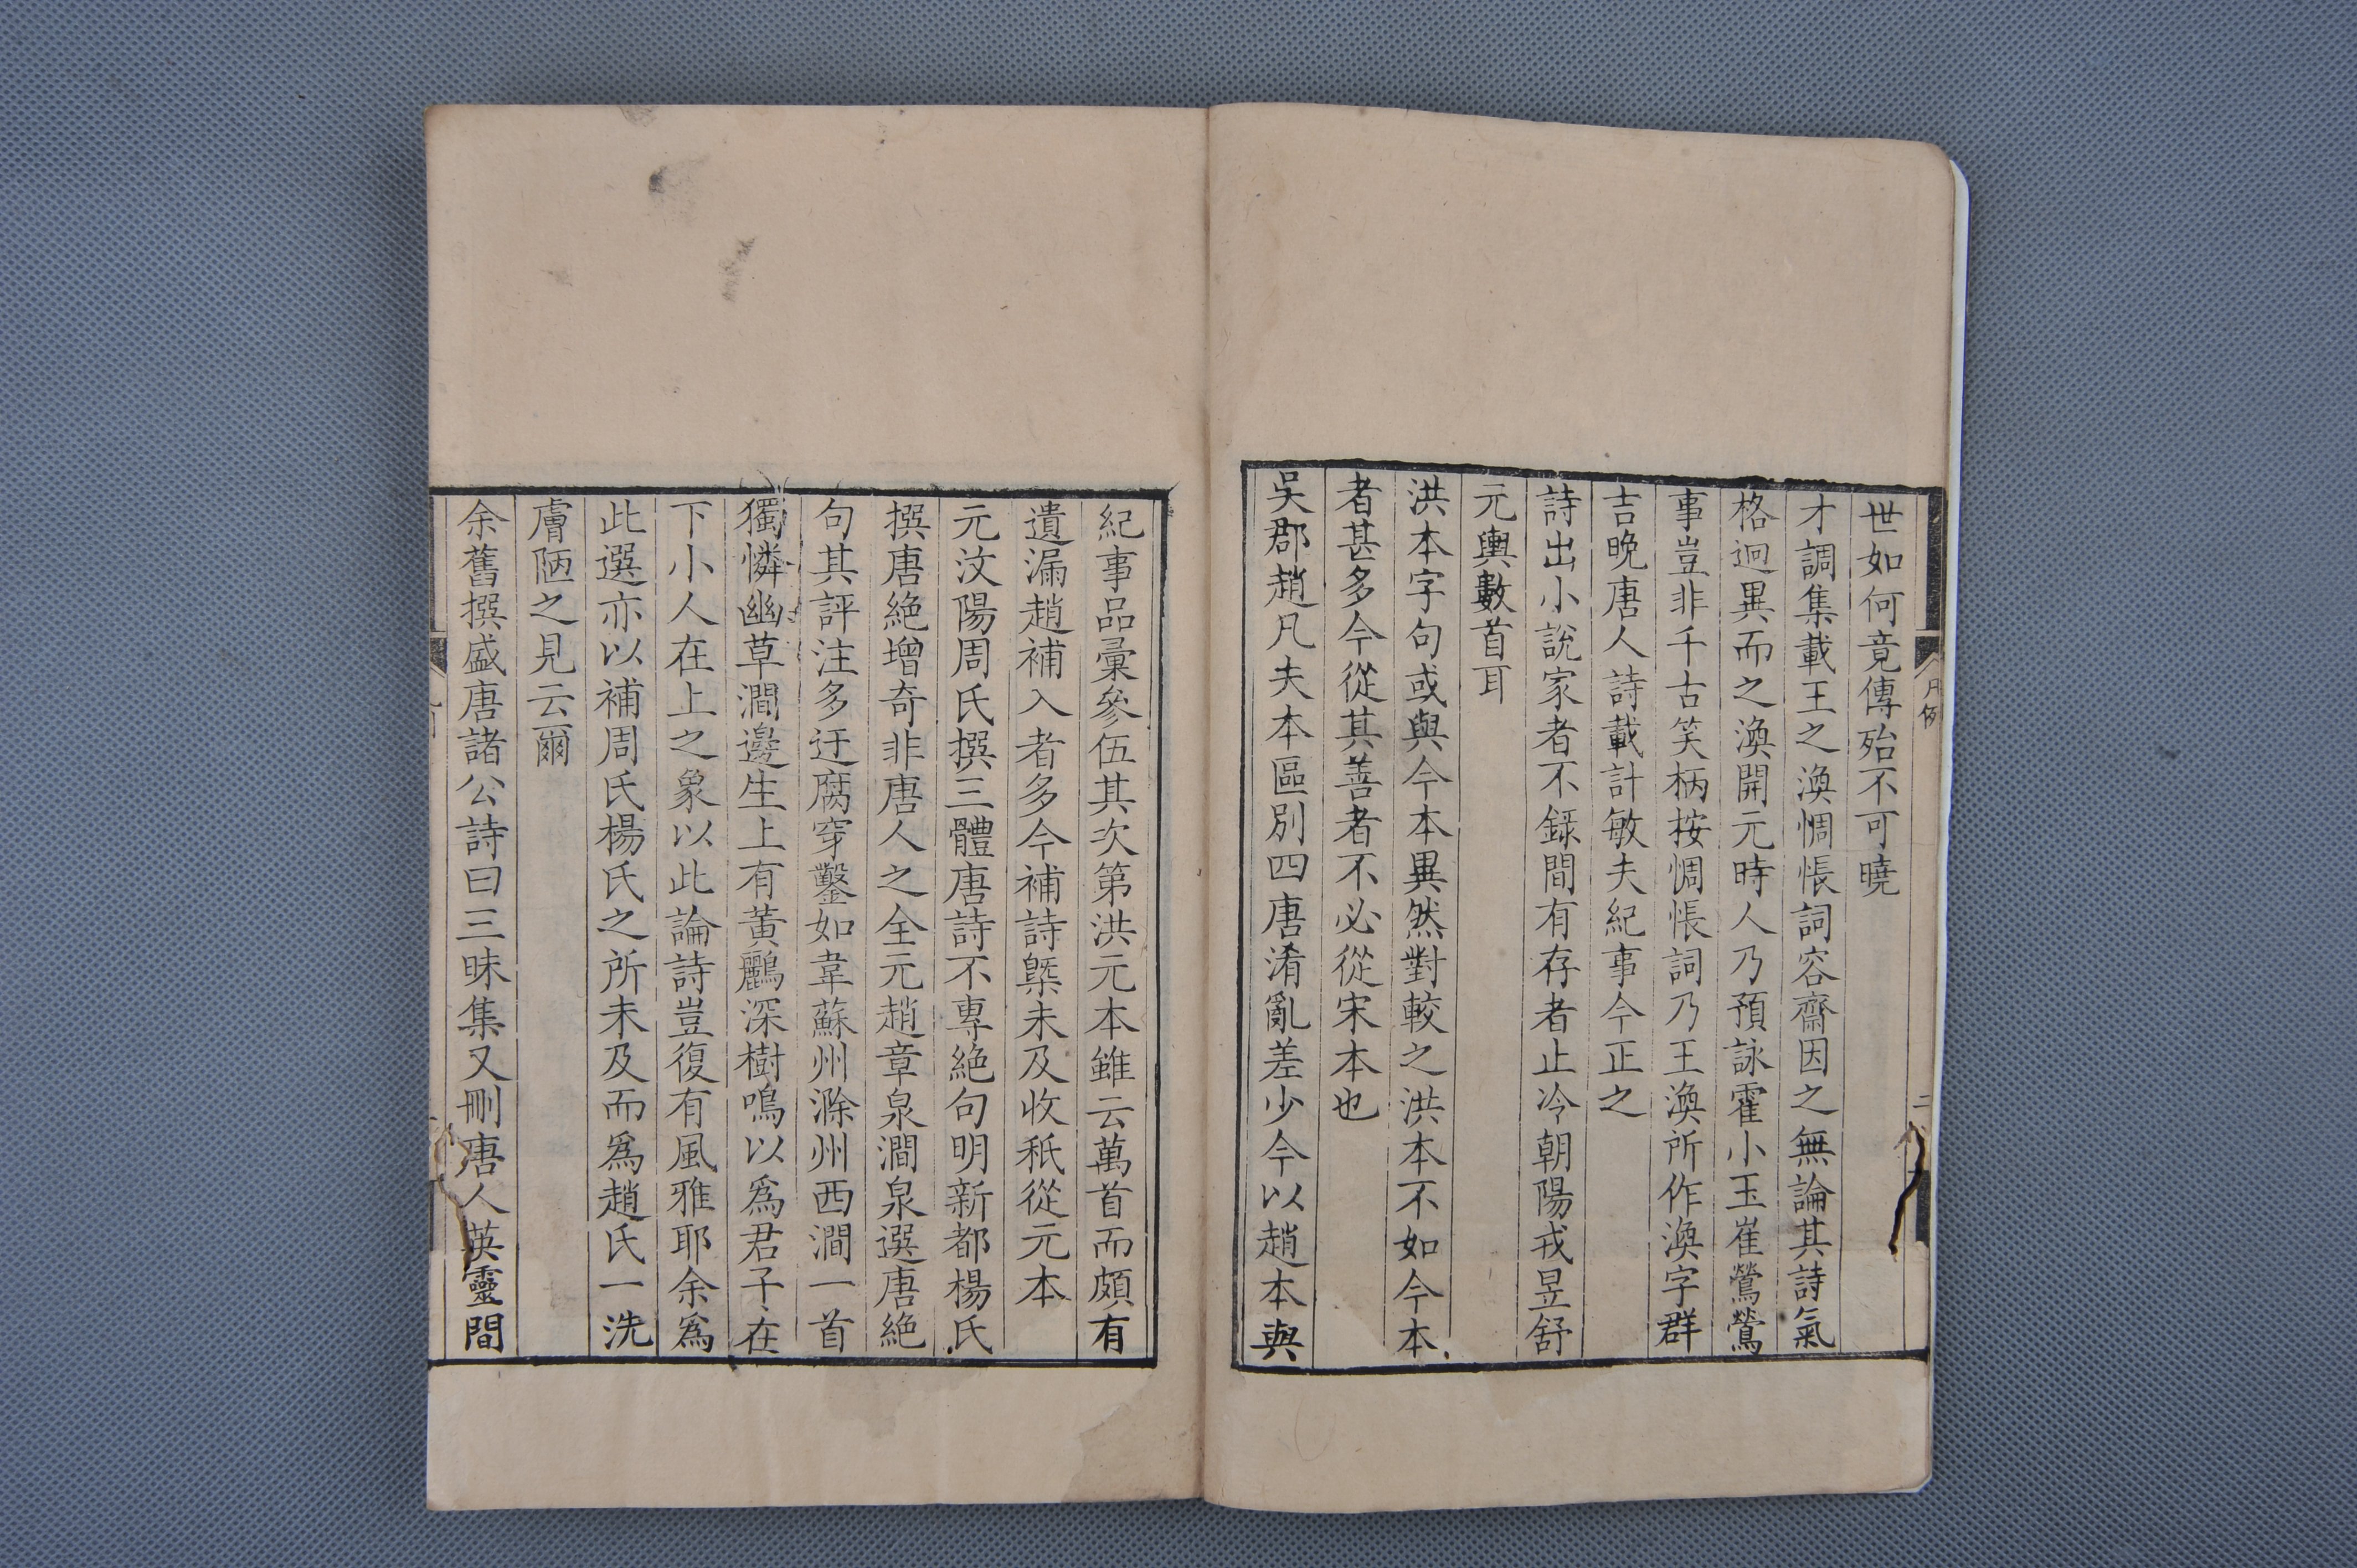 凡例
二
世如何竟傳殆不可曉
才調集載王之渙惆悵詞容齋因之無論其詩氣
格迥異而之渙開元時人乃預詠霍小玉崔鶯鶯
事豈非千古笑柄按惆悵詞乃王渙所作渙字群
吉晚唐人詩載計敏夫紀事今正之
詩出小說家者不錄間有存者止冷朝陽戎昱舒
元輿數首耳
洪本字句或與今本異然對較之洪本不如今本
者甚多今從其善者不必從宋本也
吳郡趙凡夫本區別四唐淆亂差少今以趙本與
紀事品彙參伍其次第洪元本雖云萬首而頗有
遺漏趙補入者多今補詩槩未及收秖從元本
元汶陽周氏撰三體唐詩不專絶句明新都楊氏
撰唐絶增奇非唐人之全元趙章泉澗泉選唐絶
句其評注多迂腐穿鑿如韋蘇州滁州西澗一首
獨憐幽草澗邊生上有黃鸝深樹鳴以爲君子在
下小人在上之象以此論詩豈復有風雅耶余爲
此選亦以補周氏楊氏之所未及而爲趙氏一洗
膚陋之見云爾
余舊撰盛唐諸公詩曰三昧集又刪唐人英靈間